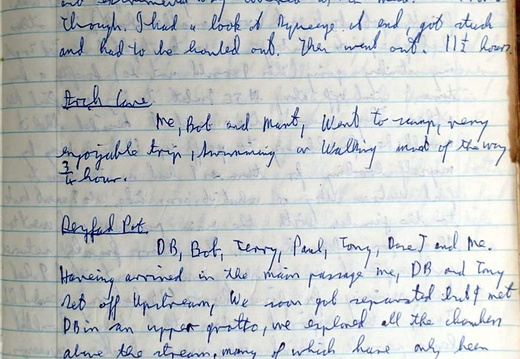 through. I had a look at squeeze at end, got stuck
and had to be hauled out. Then went out. 11½ hours.
Arch Cave
Me, Bob and Mart, Went to sump, very
enjoyable trip, swimming or walking most of the way
¾ hour.
Pot.
DB, Bob, Terry, Paul, Tony, Dave J and Me.
Having arrived in the main passage me, DB and Tony
set off Upstream, We soon got separated but I met
DB in an upper grotto, we explored all the chambers
above the stream, many of which have only been